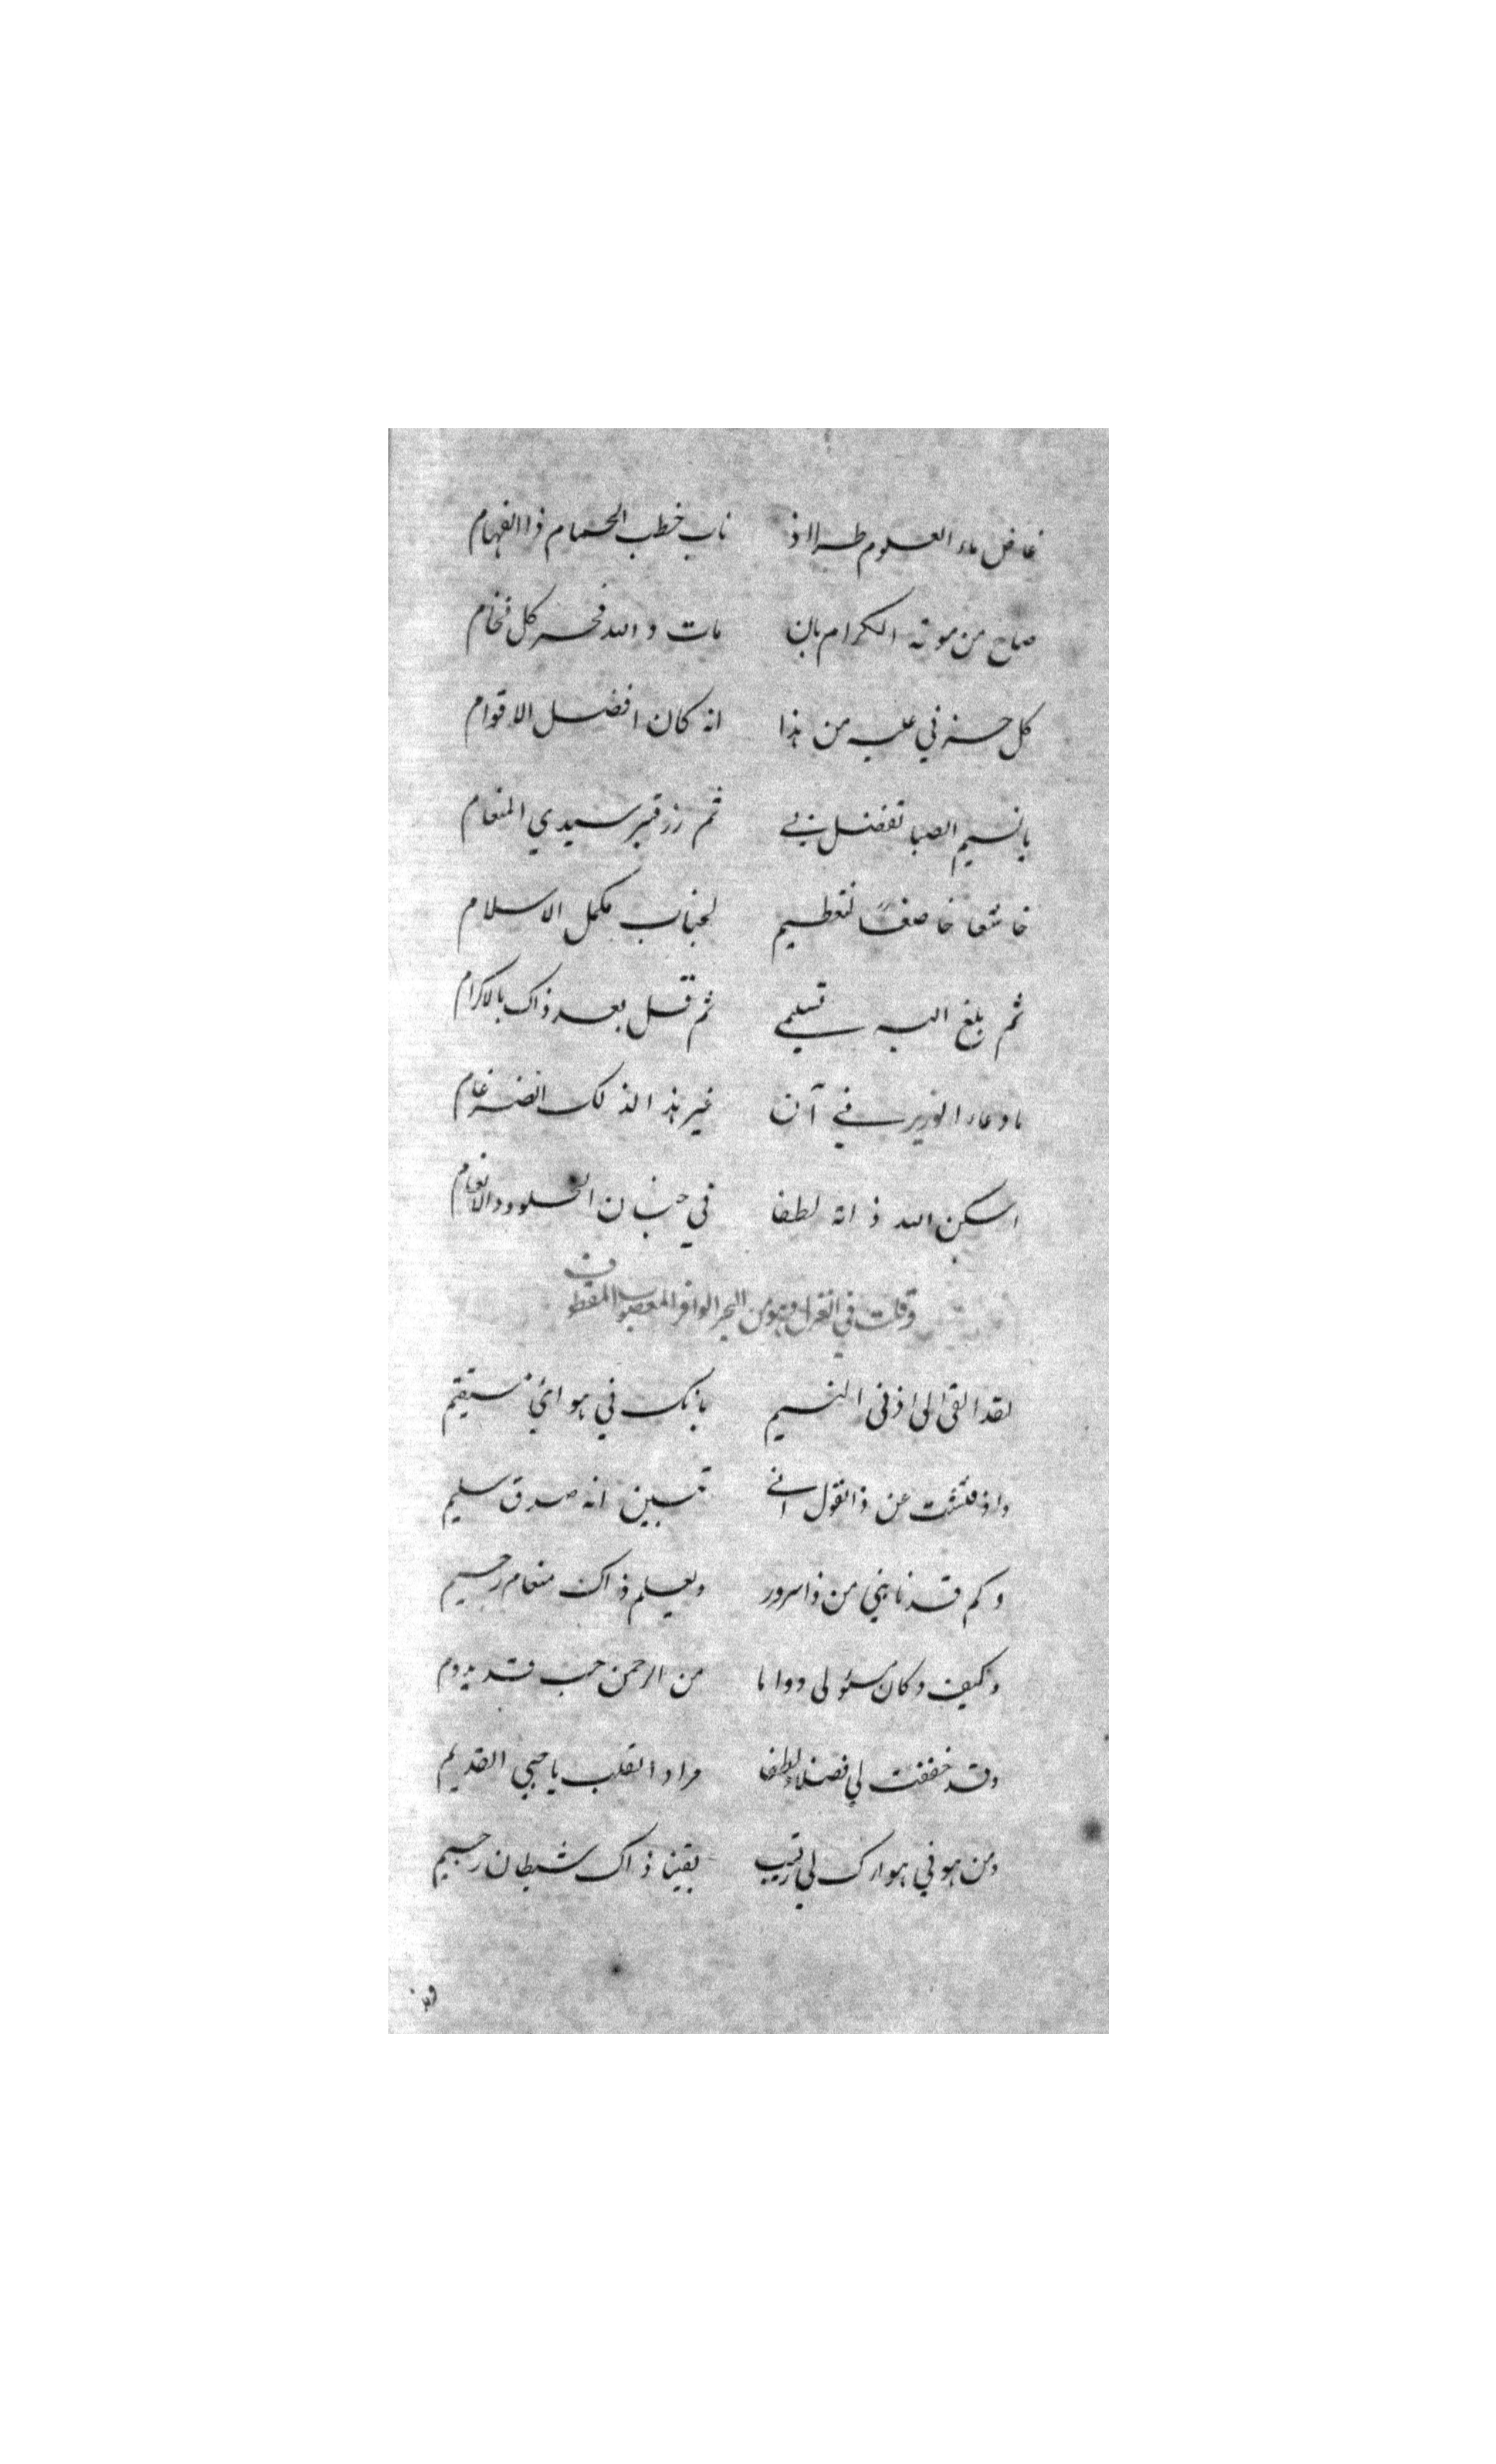 غاض ماء العلوم طرا اذ ناب خطب الحمام ذا الفهام
صاح من موته الكرام بان مات والله فخر كل فخام
كل حزني عليه من هذا انه كان افضل الاقوام
يا نسيم الصبا تفضل بي ثم زر قبر سيدي المنعام
خاشعا خاضعا لتعظيم لجناب مكمل الاسلام
ثم بلغ اليه تسليمي ثم قل بعد ذاك بالاكرام
ما دعاء الوزير في آن غير هذا لذلك الضرغام
اسكن الله ذاته لطفا في جنان الخلود والانعام
وقلت في الغزل وهو من البحر الوافر المعصوب المقطوف
لقد القى الى اذني النسيم بانك في هوائي مستقيم
واذ فتشت عن ذا القول اني تبين انه صدق سليم
وكم قد نابني من ذا سرور ويعلم ذاك منعام رحيم
وكيف وكان مسئولي دواما من الرحمن حب قد يدوم
وقد حققت لي فضلا ولطفا مراد القلب يا حبي القديم
ومن هو في هواك لي رقيب يقينا ذاك شيطان رجيم